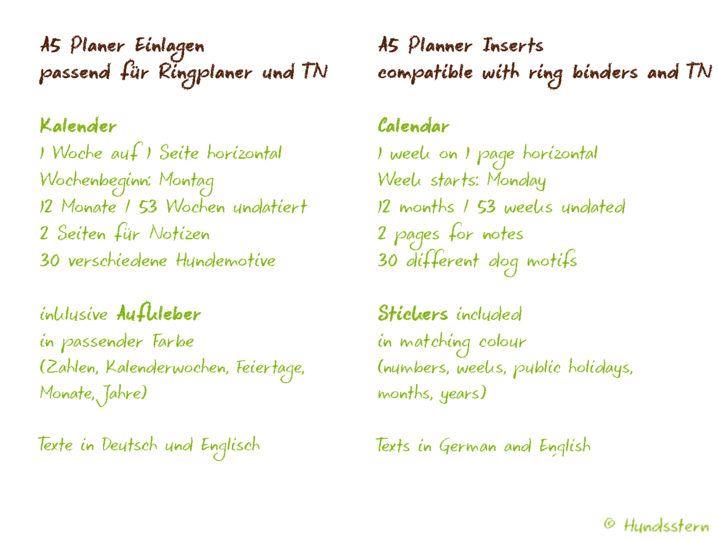 A5 Planer Einlagen
passend für Ringplaner und TN
Kalender
1 Woche auf 1 Seite horizontal
Wochenbeginn: Montag
12 Monate / 53 Wochen undatiert
2 Seiten für Notizen
30 verschiedene Hundemotive
inklusive Aufkleber
in passender Farbe
(Zahlen, Kalenderwochen, Feiertage,
Monate, Jahre)
Texte in Deutsch und Englisch
A5 Planner Inserts
compatible with ring binders and TN
Calendar
1 week on 1 page horizontal
Week starts: Monday
12 months / 53 weeks undated
2 pages for notes
30 different dog motifs
Stickers included
in matching colour
(numbers, weeks, public holidays,
months, years)
Texts in German and English
© Hundsstern